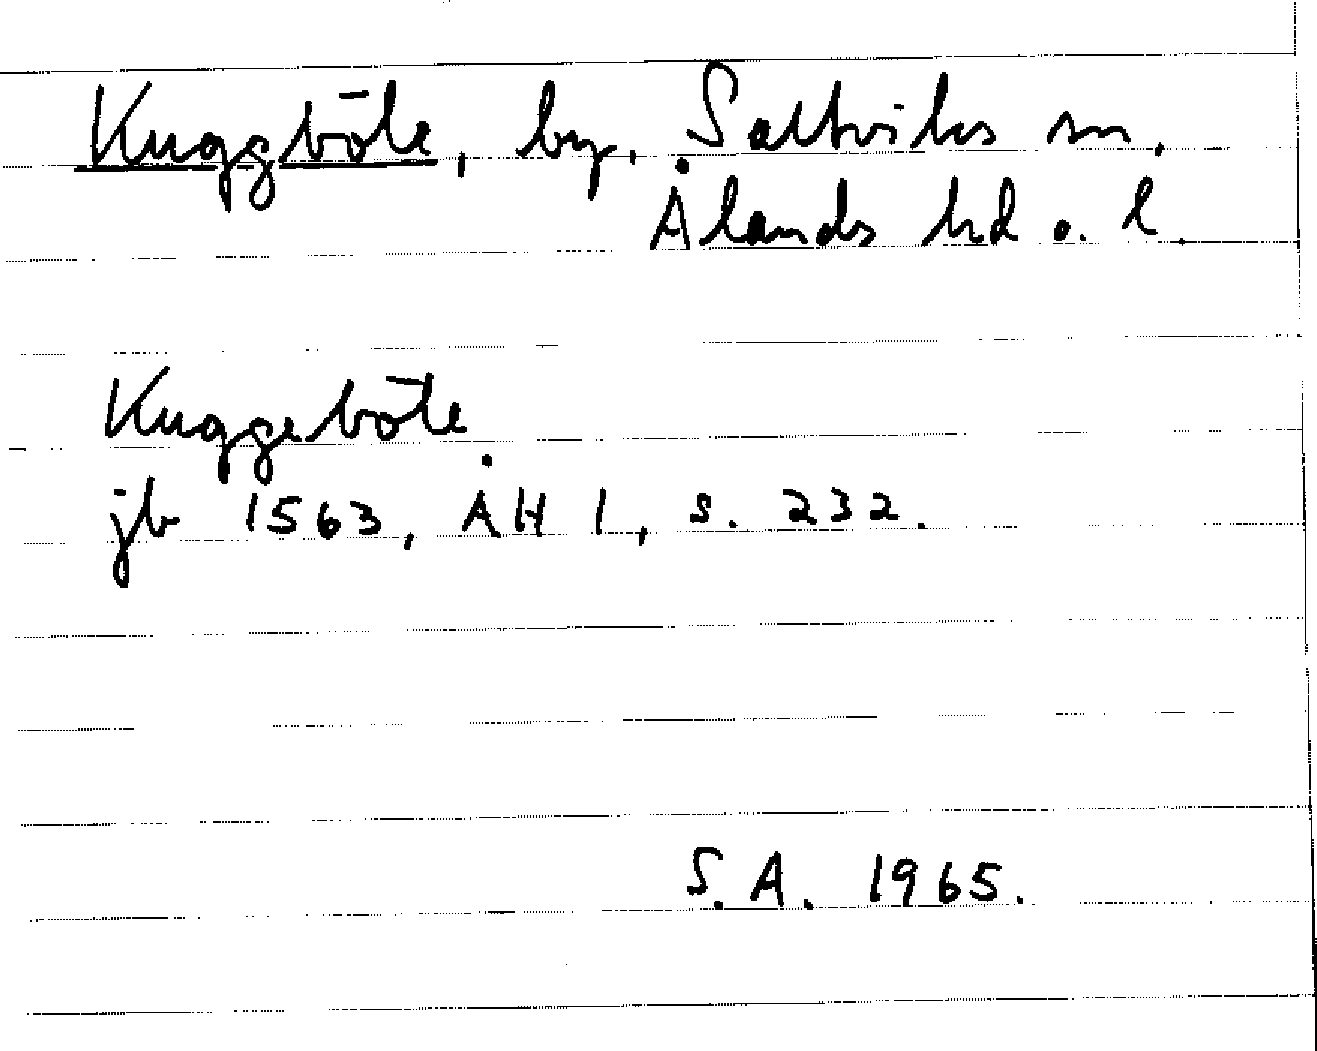 Kuggböle, by, Saltviks sn,
Ålands hd o. l.
Kuggeböle
jb 1563, ÅH I, s. 232.
S.A. 1965.